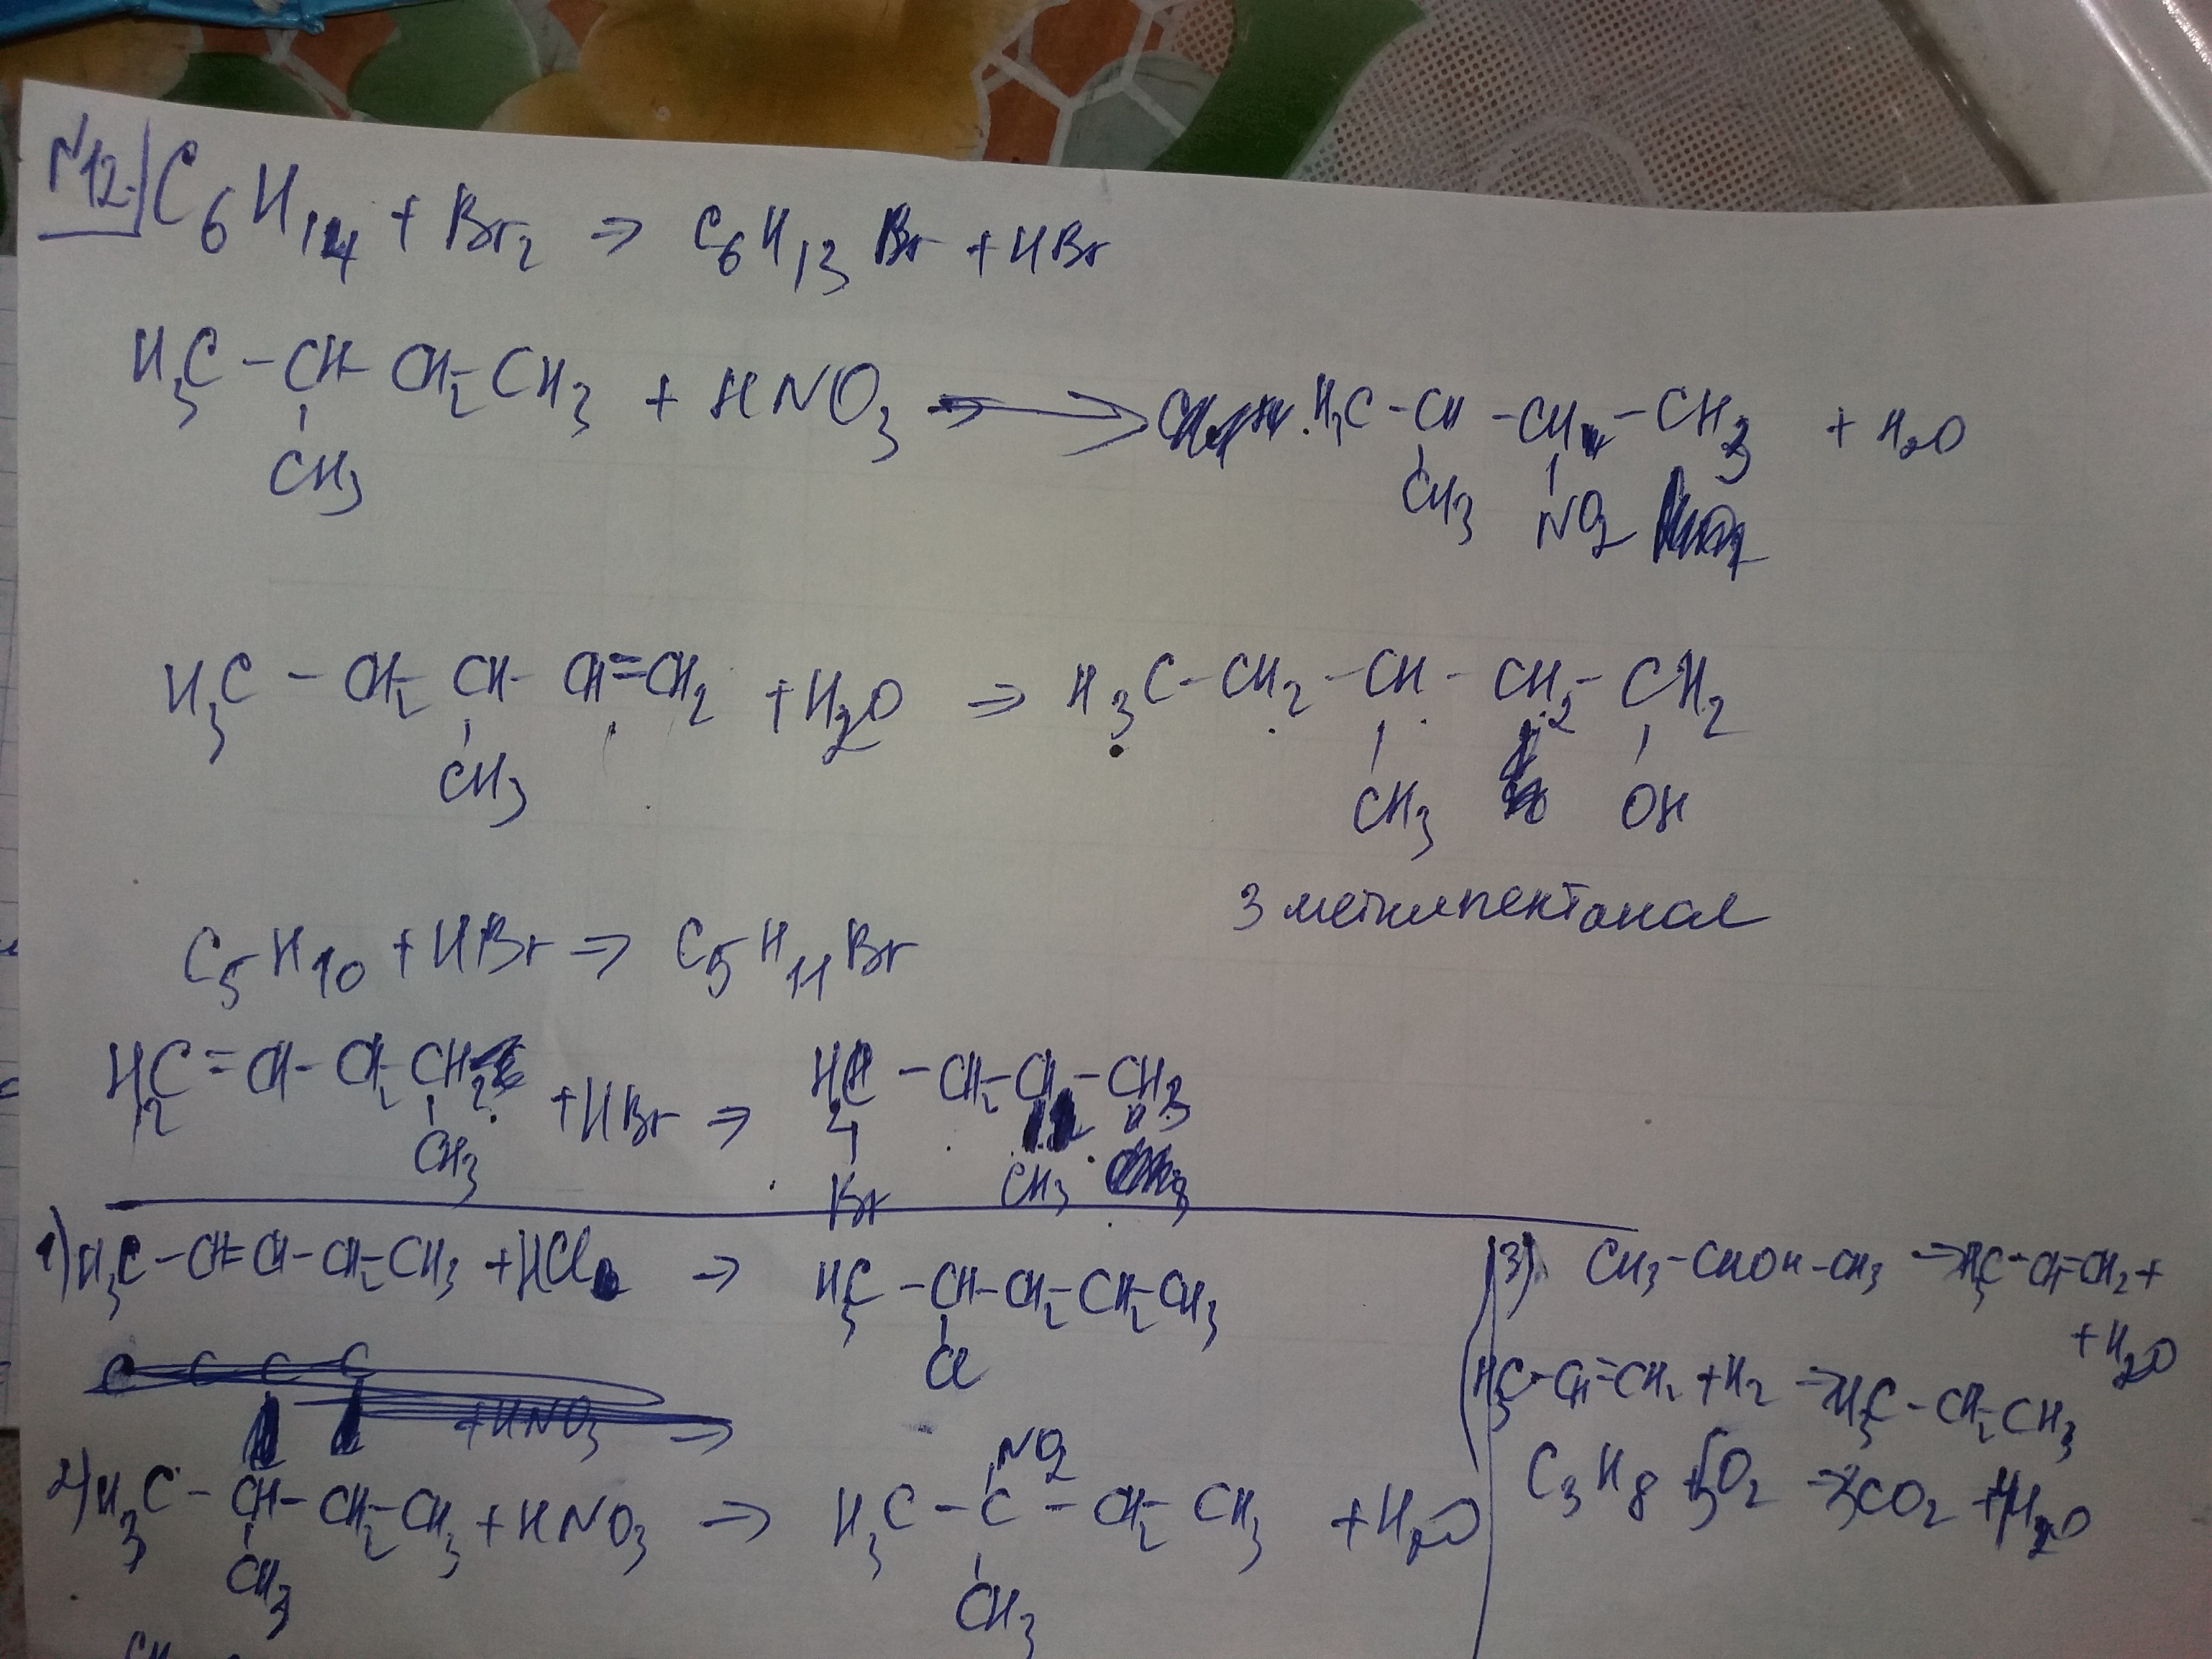 N12. C₆H₁₄ + Br₂ ⇒ C₆H₁₃Br + HBr
H₃C – CH – CH₂ – CH₃ + HNO₃ → H₃C – CH – CH – CH₃ + H₂O
CH₃ CH₃ NO₂
H₃C – CH₂ – CH – CH = CH₂ + H₂O ⇒ H₃C – CH₂ – CH – CH₂ – CH₂
CH₃ CH₃ OH
3 метилпентанал
C₅H₁₀ + HBr ⇒ C₅H₁₁Br
H₂C = CH – CH₂ – CH₂ + HBr ⇒ – CH₂ – CH₂ – CH₃
CH₃ Br CH₃
1) H₃C – CH = CH – CH₂ – CH₃ + HCl ⇒ H₃C – CH – CH₂ – CH₂ – CH₃
Cl
C C C C
+ HNO₃ ⇒
NO₂
2) H₃C – CH – CH₂ – CH₃ + HNO₃ ⇒ H₃C – C – CH₂ – CH₃ + H₂O
CH₃ CH₃
3) CH₃ – CHOH – CH₃ → H₃C – CH = CH₂ +
+ H₂O
H₃C – CH = CH₂ + H₂ → H₃C – CH₂ – CH₃
C₃H₈ + 5O₂ → 3CO₂ + 4H₂O